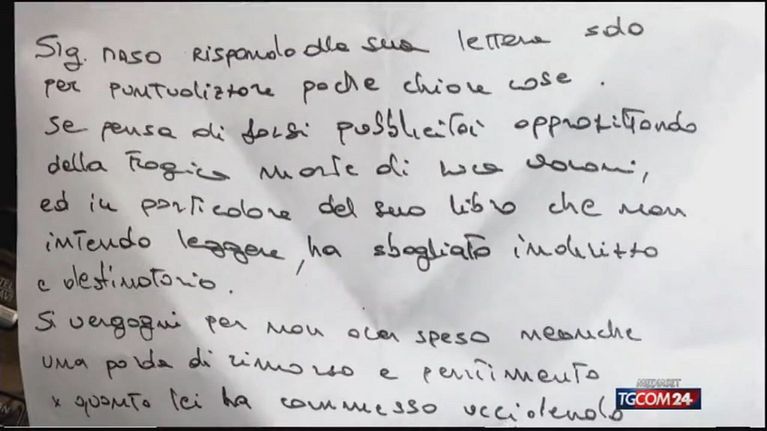 Sig. Naso rispondo alla sua lettera solo
per puntualizzare poche chiare cose.
Se pensa di farsi pubblicità approfittando
della tragica morte di Luca Varani,
ed in particolare del suo libro che non
intendo leggere, ha sbagliato indirizzo
e destinatario.
Si vergogni per non aver speso neanche
una parola di rimorso e pentimento
x quanto lei ha commesso uccidendo
MEDIASET
TGCOM24